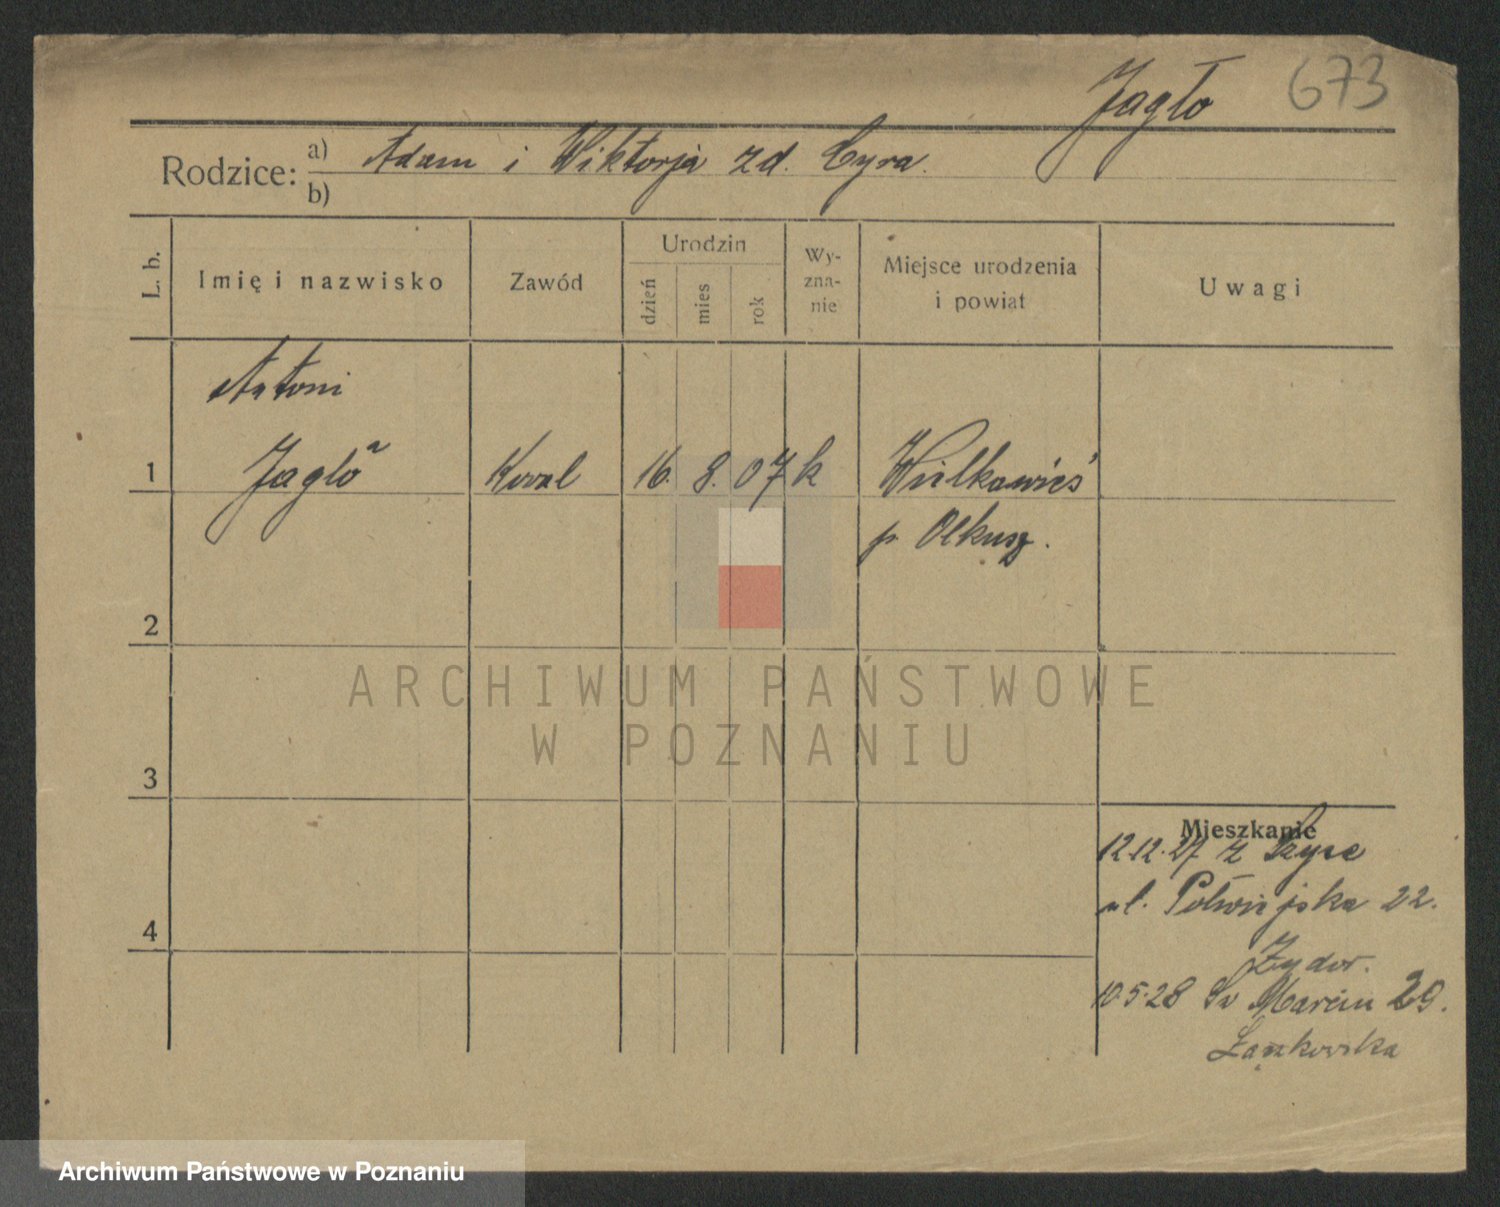 Jagło 673
Rodzice: a) Adam i Wiktorja zd. Cyra.
b)
L. b. Imię i nazwisko Zawód Urodzin dzień mies rok Wy-zna-nie Miejsce urodzenia i powiat Uwagi
Antoni
1 Jagło Kowal 16. 8. 07 k Wielkawieś
p. Olkusz.
2
ARCHIWUM PAŃSTWOWE
W POZNANIU
3
Mieszkanie
12.12.27 z
ul. Półwiejska 22.
4
10.5.28 Św Marcin 29.
Łankowska
Archiwum Państwowe w Poznaniu